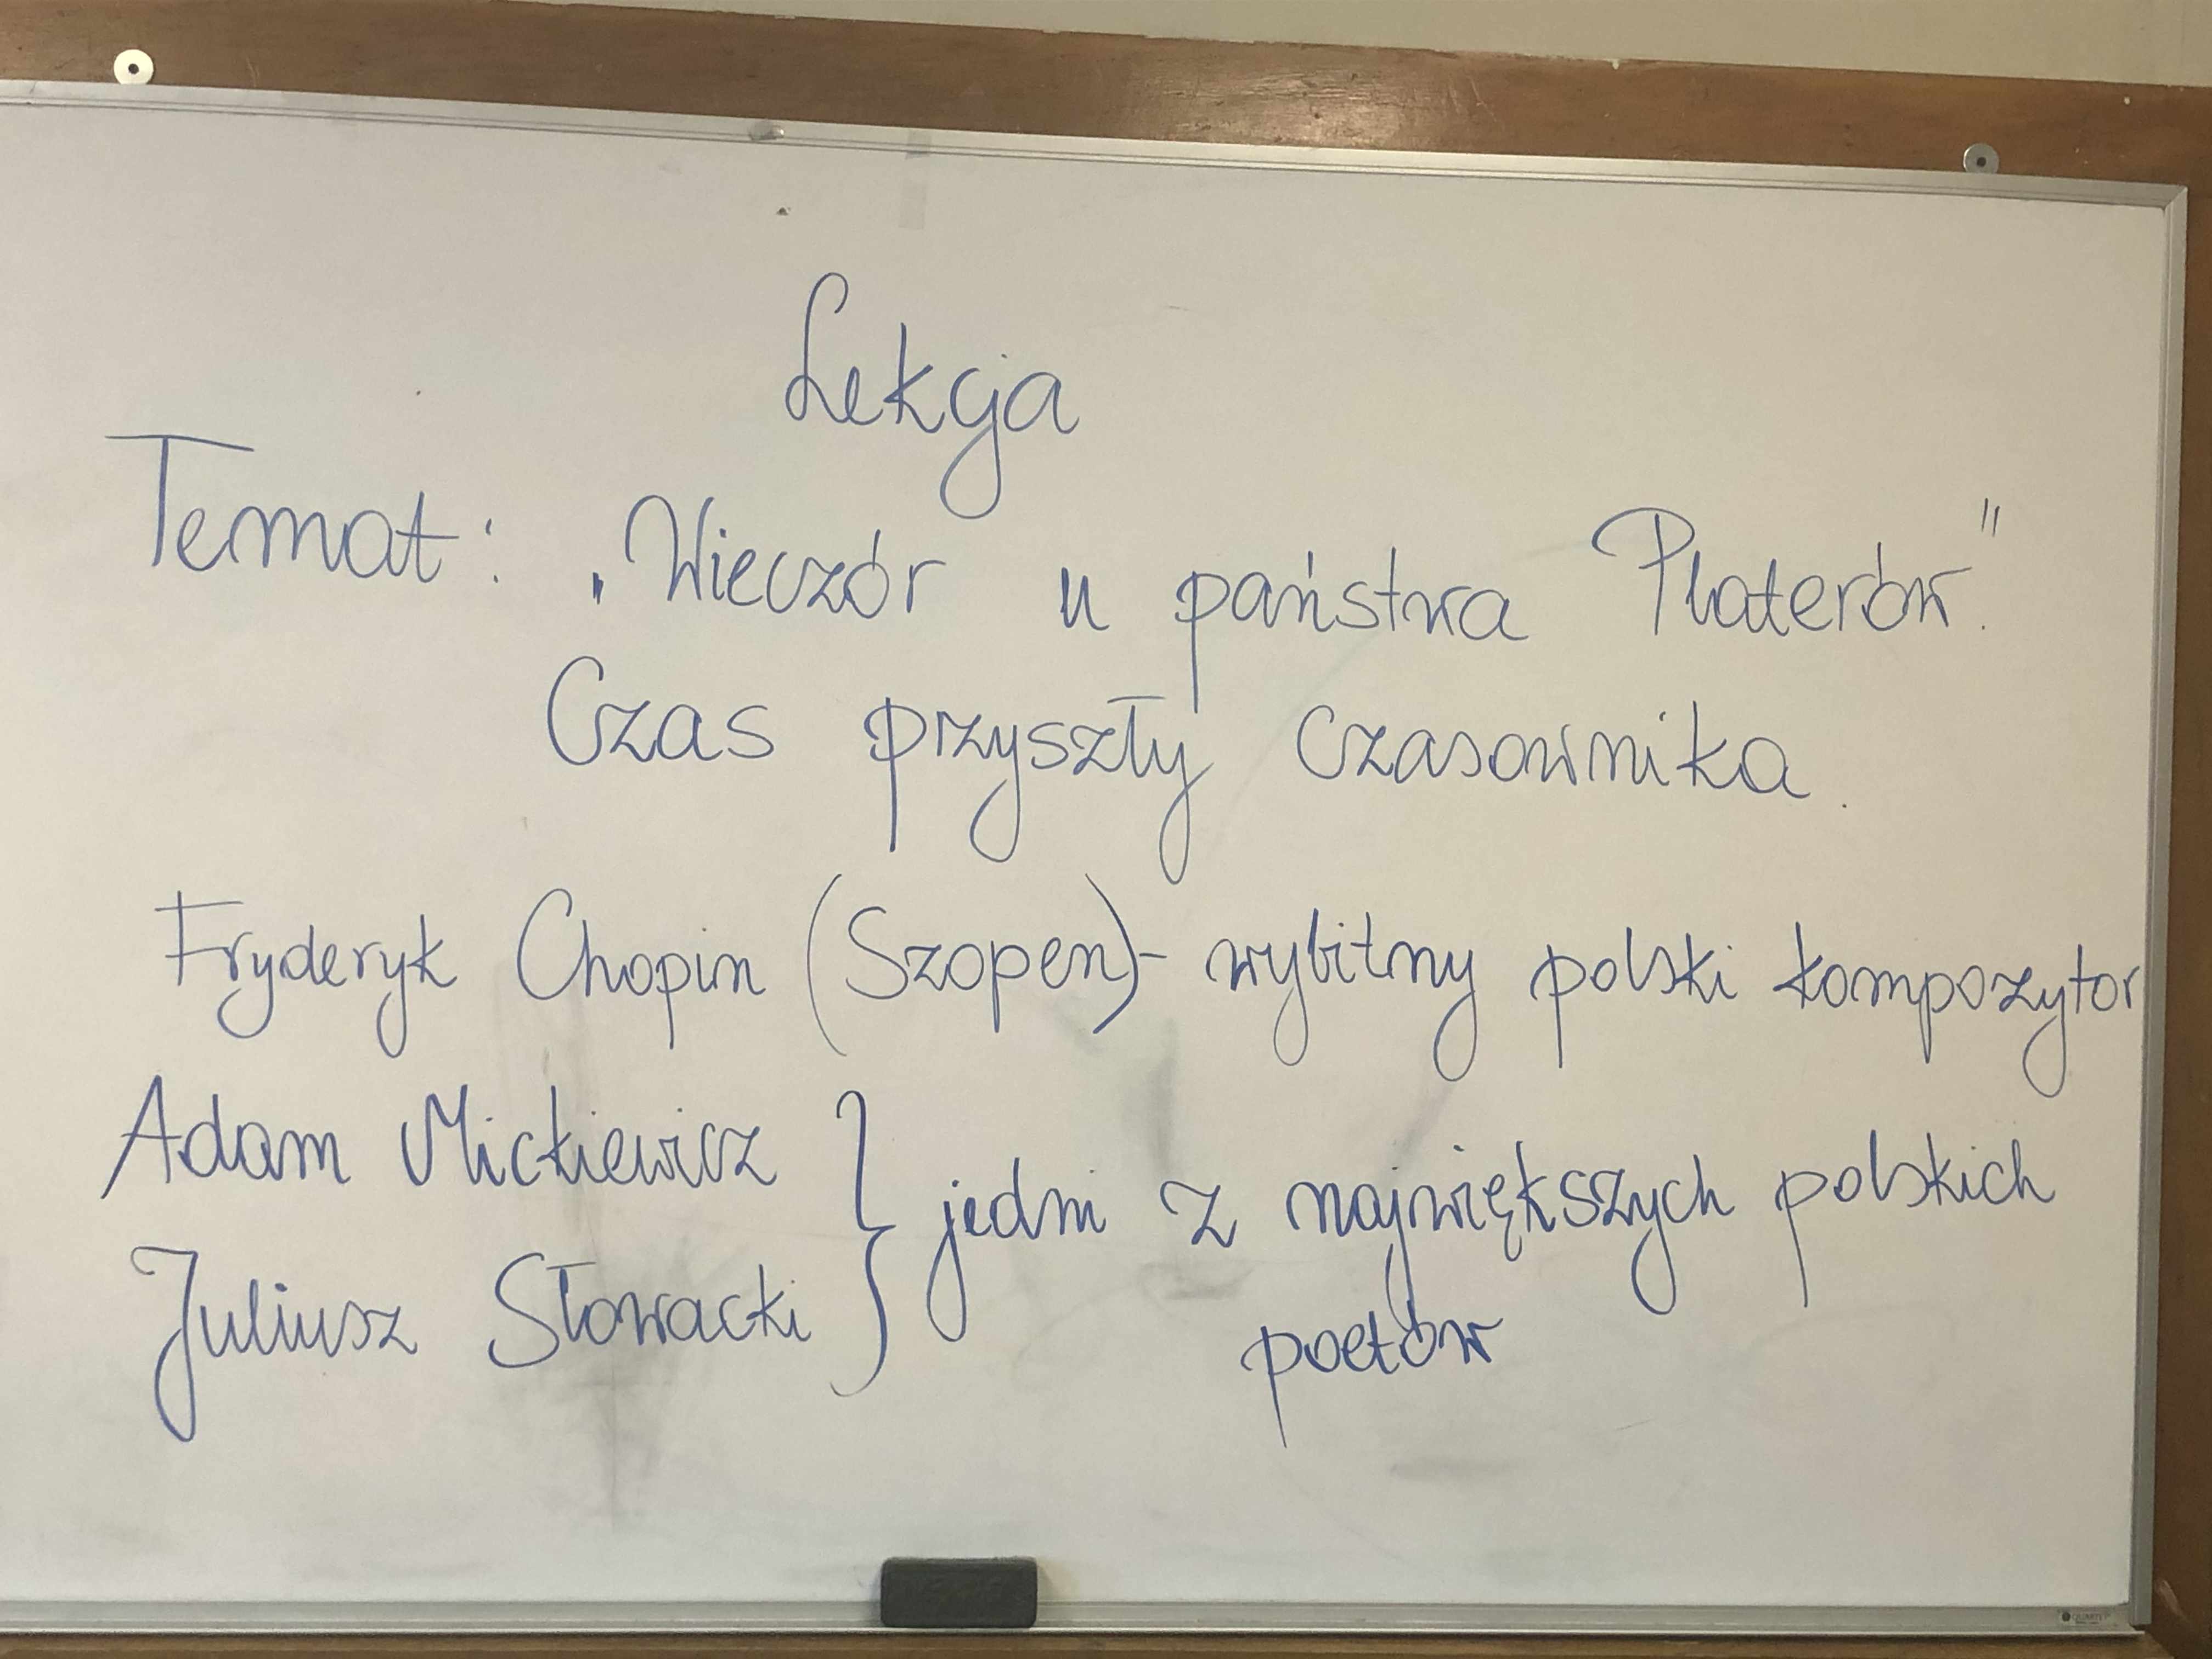 Lekcja
Temat: „Wieczór u państwa Platerów."
Czas przyszły czasownika.
Fryderyk Chopin (Szopen)- wybitny polski kompozytor
Adam Mickiewicz
Juliusz Słowacki } jedni z największych polskich
poetów